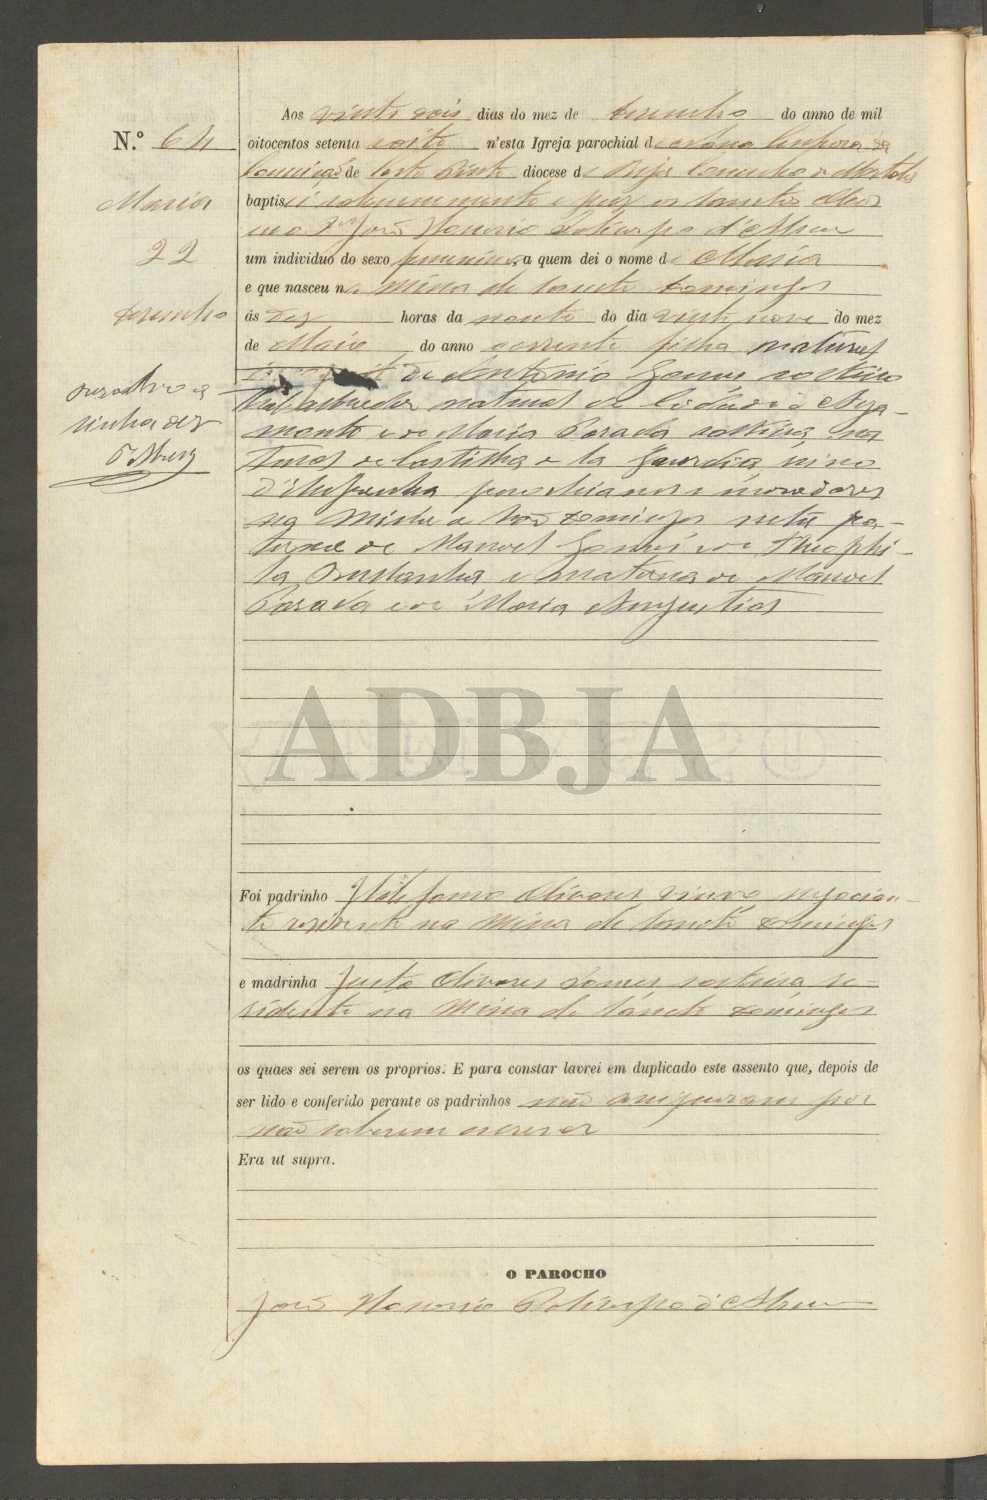 Aos vinte dois dias do mez de Dezembro do anno de mil
N.º 64
oitocentos setenta oito n'esta Igreja parochial de Nossa Senhora da
Conceição de Corte Pinto diocese de Beja Concelho de Mertola
Maria
baptisei solemnemente e puz os Sanctos Oleos
eu o João Honorio Policarpo d'Abreu
22
um individuo do sexo feminino a quem dei o nome de Maria
e que nasceu na Mina de Sancto Domingos
Dezembro
ás dez horas da noute do dia vinte nove do mez
de Maio do anno corrente filha natural
de Antonio Gomes solteiro
trabalhador natural de Aya-
monte e de Maria Parada solteira na
tural de Castilha a la Guardia reino
d'Hespanha parochianos e moradores
na Mina de São Domingos neta pa-
terna de Manoel Gomes e de Theophi-
la e materna de Manoel
Parada e de Maria Angustias
d'Abreu
ADBJA
Foi padrinho Olivares viuvo negocian-
te residente na Mina de Sancto Domingos
e madrinha Justa Olivares Gomes solteira re-
sidente na Mina de Sancto Domingos
os quaes sei serem os proprios. E para constar lavrei em duplicado este assento que, depois de
ser lido e conferido perante os padrinhos não assignaram por
não saberem escrever
Era ut supra.
O PAROCHO
João Honorio Policarpo d'Abreu